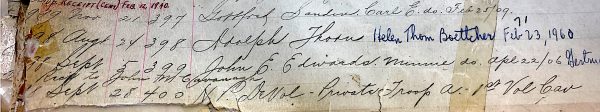 Receipt (Cem) Feb 12 1910
97 Nov 21 397 Gottfried Sanders Carl E. do. Feb 25/09.
98 Augt 24 398 Adolph Thom Helen Thom Boettcher Feb 23, 1960
'71
98 Sept 5 399 John E. Edwards. Minnie do. Apl 22/06 Gertrude
to John M Cavanagh
Sept 28 400 N. P. DeVol - Private Troop A. 1st Vol Cav